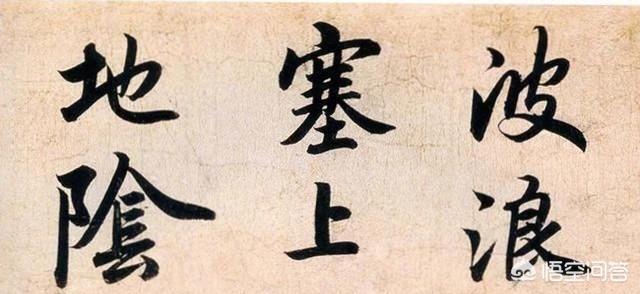 波浪
塞上
地陰
悟空问答